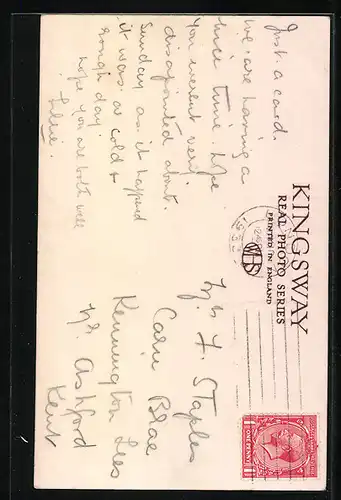 Just a card.
We are having a
nice time. Hope
you werent very
disapointed abut.
Sunday as it happend
it was a cold &
rough day.
hope you are both well
KINGSWAY
REAL PHOTO SERIES
PRINTED IN ENGLAND
WHS
F. Staples
Carn Brae
Kennington Lees
Nr Ashford
Kent
ONE PENNY